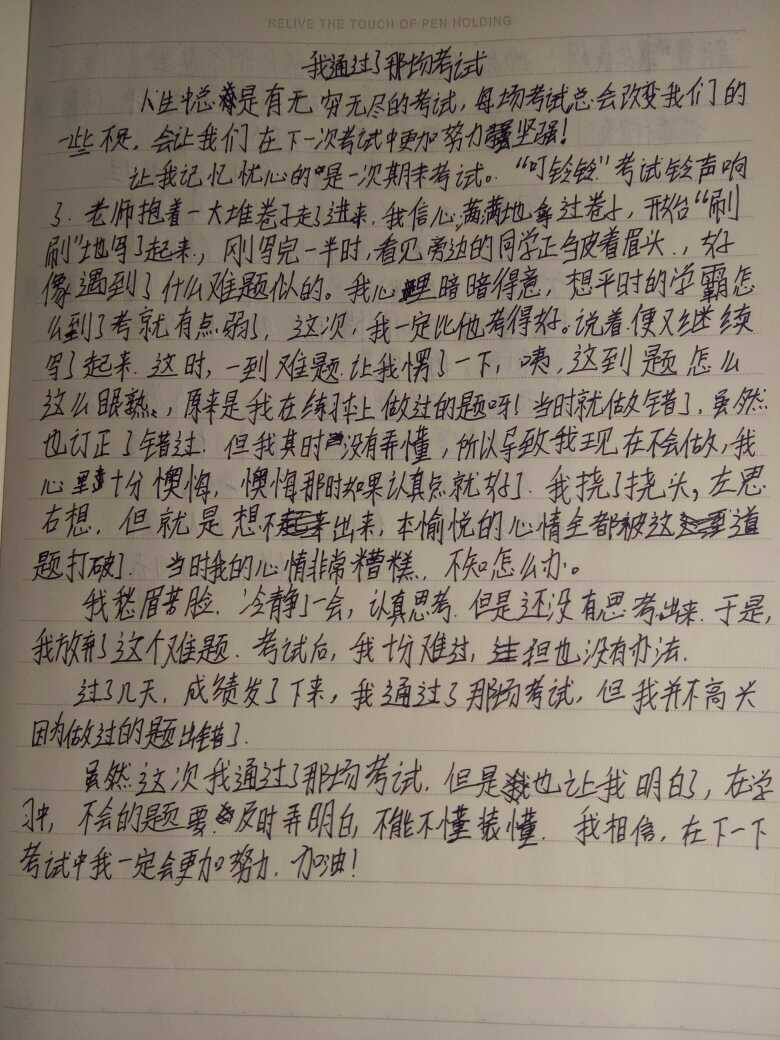 RELIVE THE TOUCH OF PEN HOLDING
我通过了那场考试
人生中总是有无穷无尽的考试,每场考试总会改变我们的
一些不足,会让我们在下一次考试中更加努力坚强!
让我记忆忧心的是一次期末考试。“叮铃铃”考试铃声响
了.老师抱着一大堆卷子走了进来.我信心满满地拿过卷子,开始“刷
刷”地写了起来.,刚写完一半时,看见旁边的同学正皱着眉头.,好
像遇到了什么难题似的。我心里暗暗得意,想平时的学霸怎
么到了考就有点弱了,这次,我一定比他考得好。说着.便又继续
写了起来.这时,一到难题.让我愣了一下,咦,这到题怎么
这么眼熟.,原来是我在练习本上做过的题呀!当时就做错了.虽然
也订正了错过.但我其时没有弄懂,所以导致我现在不会做,我
心里十分懊悔,懊悔那时如果认真点就好了.我挠了挠头,左思
右想.但就是想不出来,本愉悦的心情全都被这道
题打破了.当时我的心情非常糟糕.,不知怎么办。
我愁眉苦脸.冷静了一会,认真思考.但是还没有思考出来.于是,
我放弃了这个难题.考试后,我十分难过,担也没有办法.
过了几天,成绩发了下来,我通过了那场考试,但我并不高兴
因为做过的题出错了.
虽然这次我通过了那场考试.但是也让我明白了,在学
习中,不会的题要及时弄明白,不能不懂装懂.我相信,在下一下
考试中我一定会更加努力.加油!